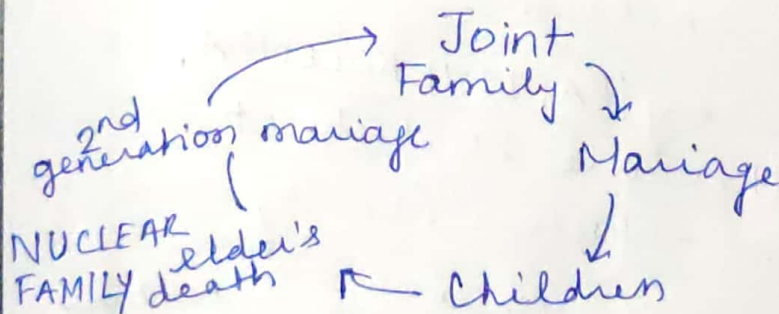 Joint
Family
2nd
generation mariage
Mariage
NUCLEAR elder's
FAMILY death
Children